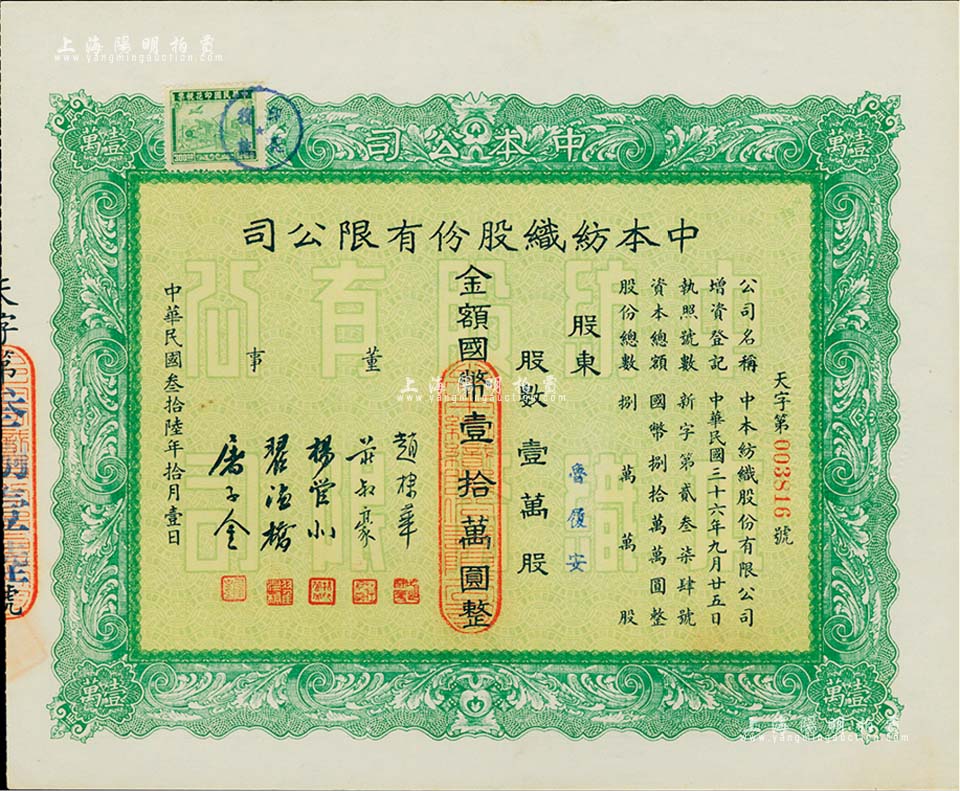 上海陽明拍賣
www.yangmingauction.com
中華民國印花稅票
司公本中
壹萬
壹萬
司公限有份股織紡本中
天字第003816號
公司名稱 中本紡織股份有限公司
增資登記 中華民國三十六年九月廿五日
執照號數 新字第貳叁柒肆號
資本總額 國幣捌拾萬萬圓整
股份總數 捌萬萬股
股東 魯履安
股數壹萬股
金額國幣壹拾萬圓整
董事
趙棣華
楊管北
屠子全
中華民國叁拾陸年拾月壹日
上海陽明拍賣
www.yangmingauction.com
天字第
號
壹萬
壹萬
上海陽明拍賣
www.yangmingauction.com